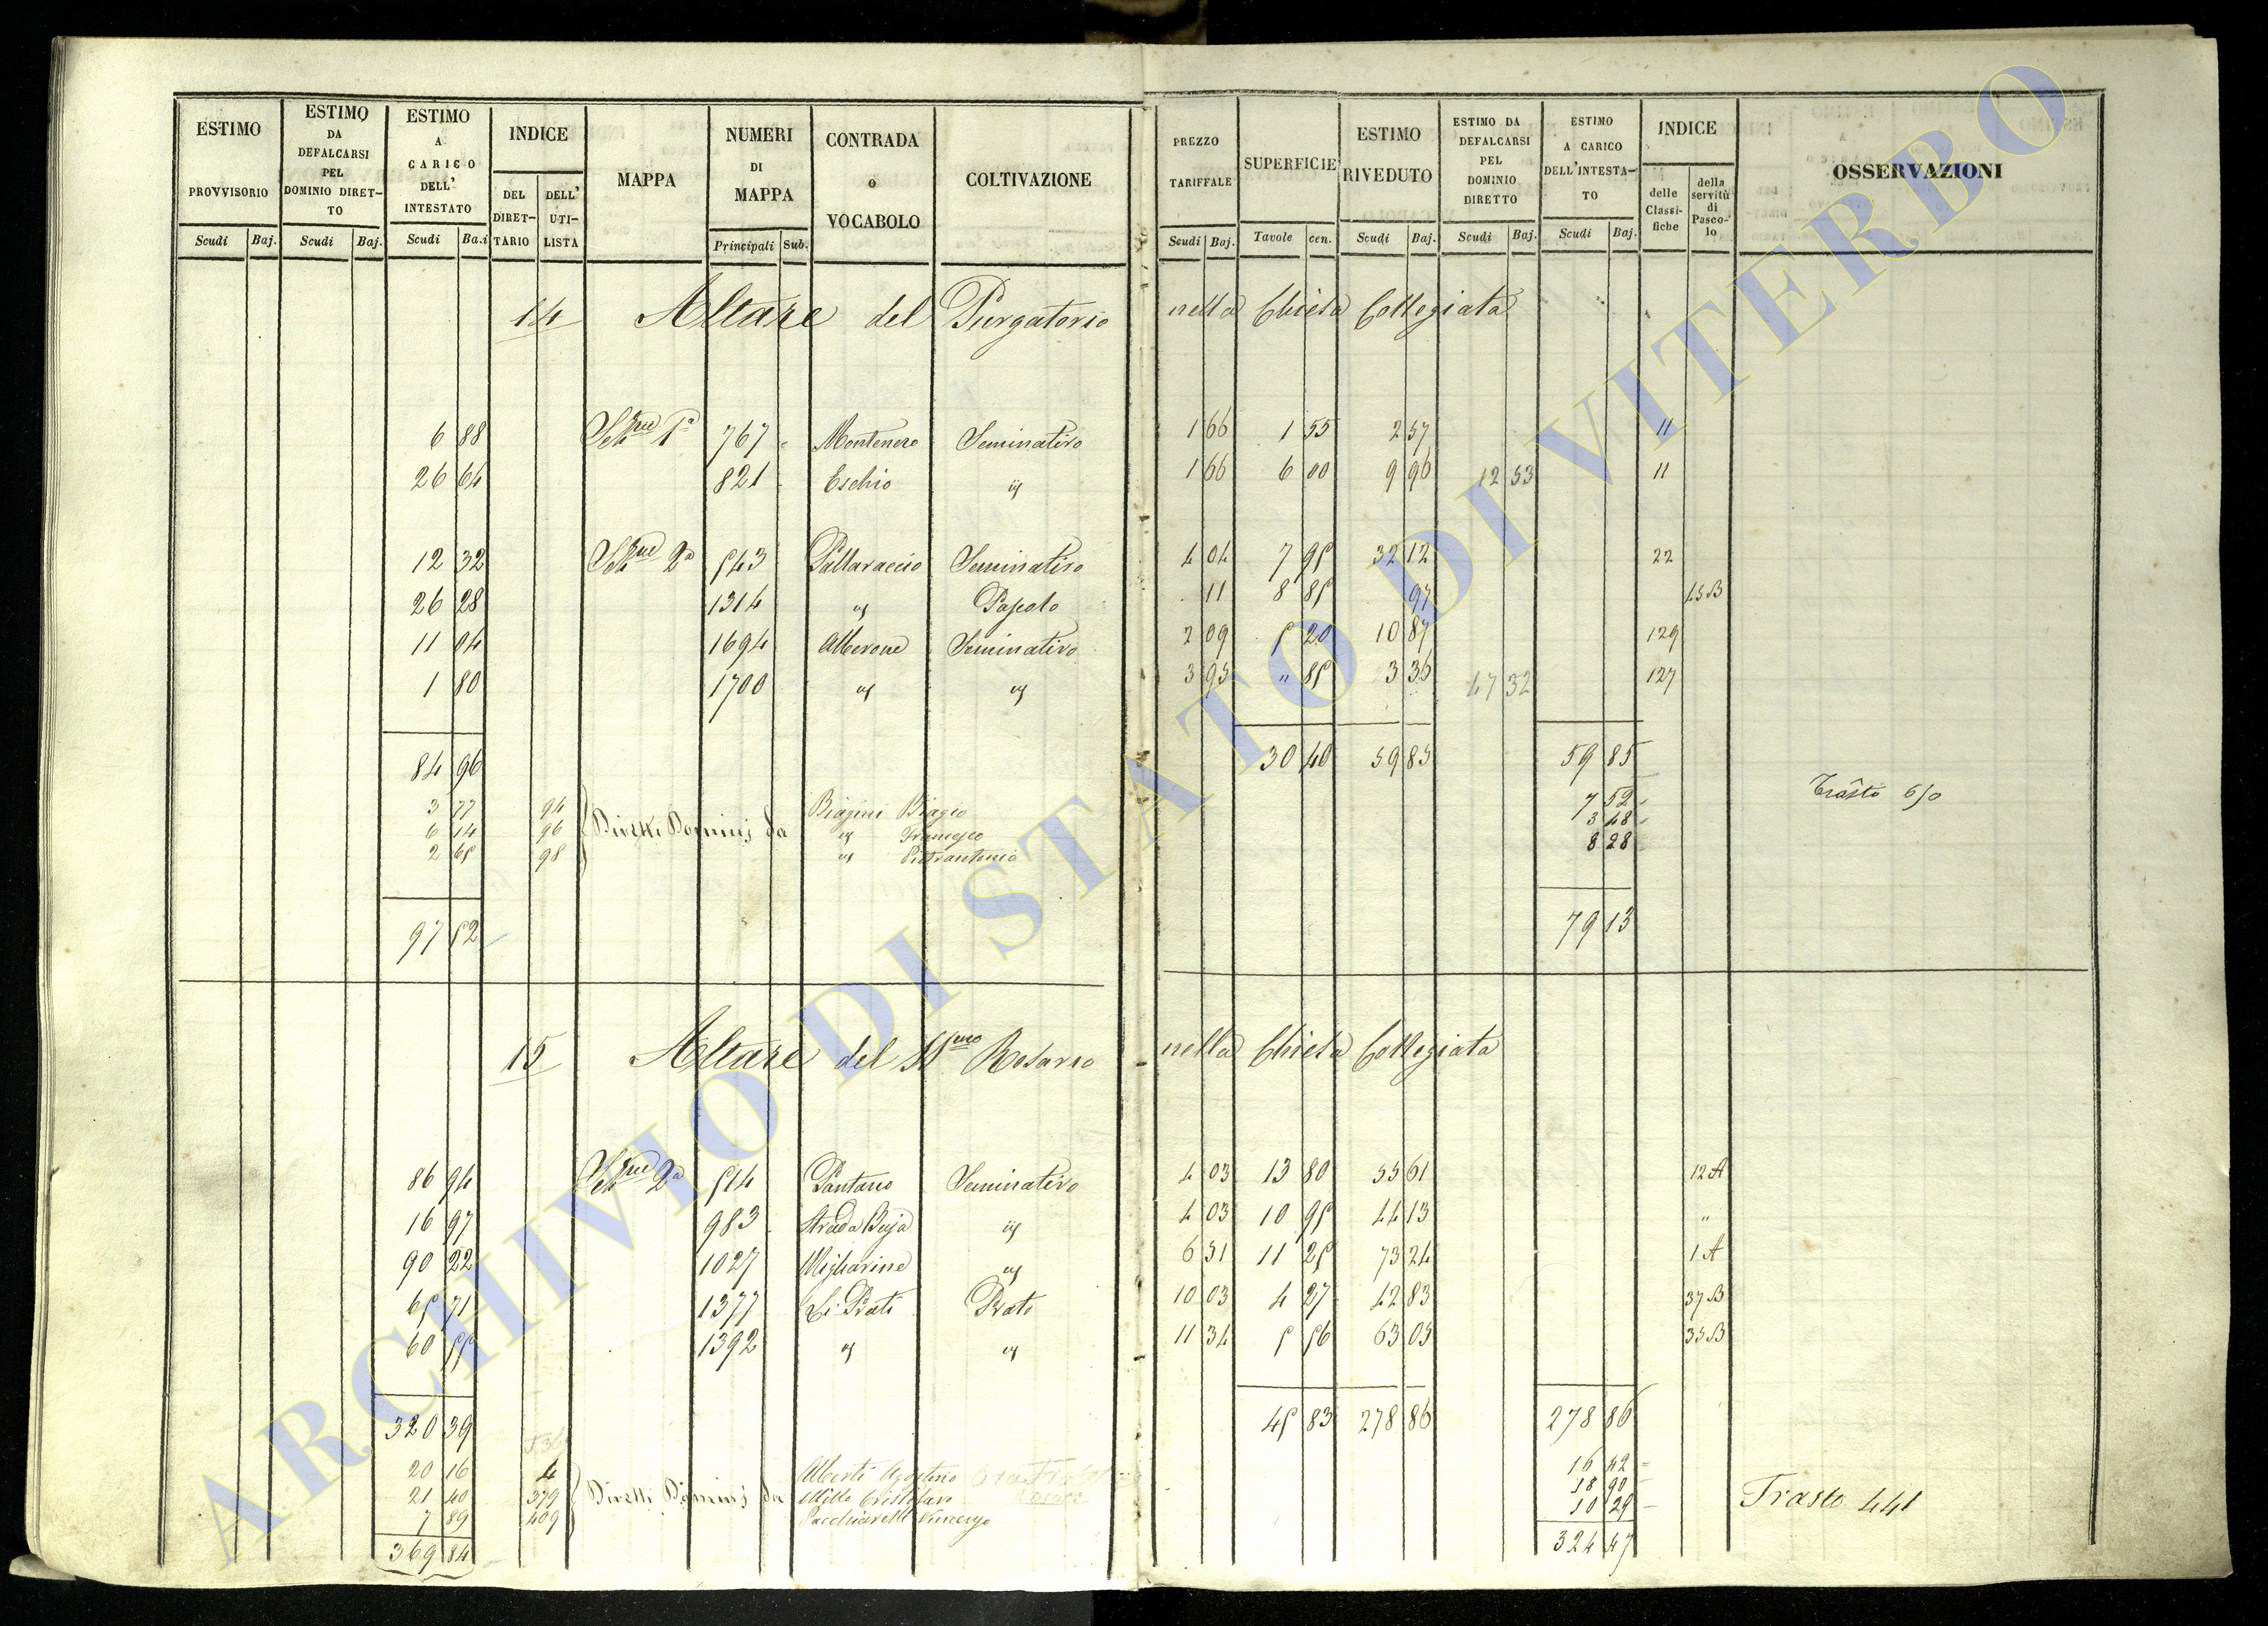 ESTIMO PROVVISORIO | ESTIMO DA DEFALCARSI PEL DOMINIO DIRETTO | ESTIMO A CARICO DELL' INTESTATO | INDICE | MAPPA | NUMERI DI MAPPA | CONTRADA o VOCABOLO | COLTIVAZIONE | PREZZO TARIFFALE | SUPERFICIE | ESTIMO RIVEDUTO | ESTIMO DA DEFALCARSI PEL DOMINIO DIRETTO | ESTIMO A CARICO DELL'INTESTATO | INDICE | OSSERVAZIONI
DEL DIRETTARIO | DELL' UTILISTA | delle Classifiche | della servitù di Pascolo
Scudi | Baj. | Scudi | Baj. | Scudi | Ba.i | Principali | Sub. | Scudi | Baj. | Tavole | cen. | Scudi | Baj. | Scudi | Baj. | Scudi | Baj.
14 Altare del Purgatorio nella Chiesa Collegiata
6 88 | Sezne 1a | 767 | Montenero | Seminativo | 1 66 | 1 55 | 2 57 | 11
26 64 | 821 | Eschio | id | 1 66 | 6 00 | 9 96 | 12 53 | 11
12 32 | Sezne 2a | 543 | Pallaraccio | Seminativo | 4 04 | 7 95 | 32 12 | 22
26 28 | 1314 | id | Pascolo | 11 | 8 85 | 97 | 45 B
11 04 | 1694 | Alberone | Seminativo | 2 09 | 5 20 | 10 87 | 129
1 80 | 1700 | id | id | 3 95 | " 85 | 3 36 | 47 32 | 127
84 96 | 30 40 | 59 85 | 59 85
3 77 | 94 | Diretti Dominj da | Biagini Biagio | 7 52 | Trasto 650
6 14 | 96 | id Francesco | 3 48
2 65 | 98 | id Pietrantonio | 8 28
97 52 | 79 13
15 Altare del SSmo Rosario nella Chiesa Collegiata
86 94 | Sezne 2a | 514 | Pantano | Seminativo | 4 03 | 13 80 | 55 61 | 12 A
16 97 | 983 | Strada Buja | id | 4 03 | 10 95 | 44 13 | "
90 22 | 1027 | Migliarine | id | 6 51 | 11 25 | 73 24 | 1 A
65 71 | 1377 | Li Prati | Prato | 10 03 | 4 27 | 42 83 | 37 B
60 55 | 1392 | id | id | 11 34 | 5 56 | 63 05 | 35 B
320 39 | 45 83 | 278 86 | 278 86
20 16 | 4 | Diretti Dominj da | Alberti Agostino | 16 42
21 40 | 379 | Cristofaro | 18 90 | Trasto 441
7 89 | 409 | Pacchiarelli Vincenzo | 10 29
369 84 | 324 47
ARCHIVIO DI STATO DI VITERBO